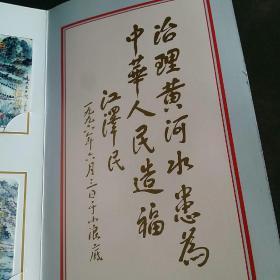 治理黄河水患为
中華人民造福
江澤民
一九九六年六月三日于小浪底